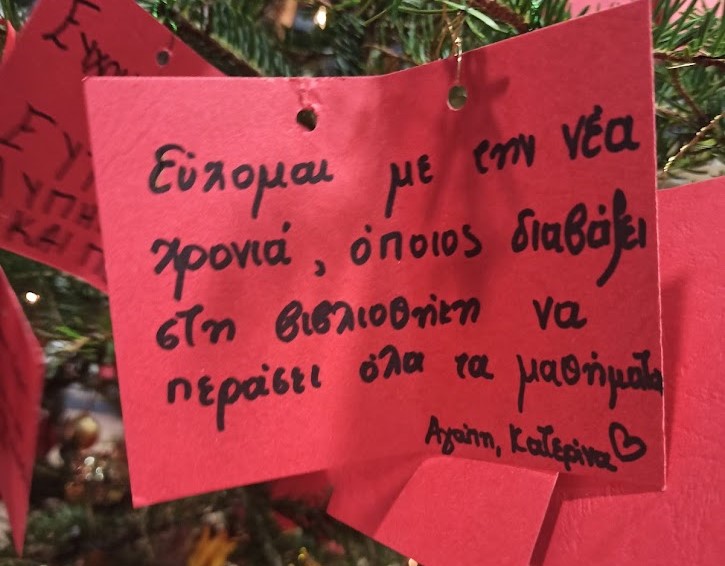 Εύχομαι με την νέα
χρονιά, όποιος διαβάζει
στη βιβλιοθήκη να
περάσει όλα τα μαθήματα
Αγάπη, Κατερίνα♡
ΚΑΙ